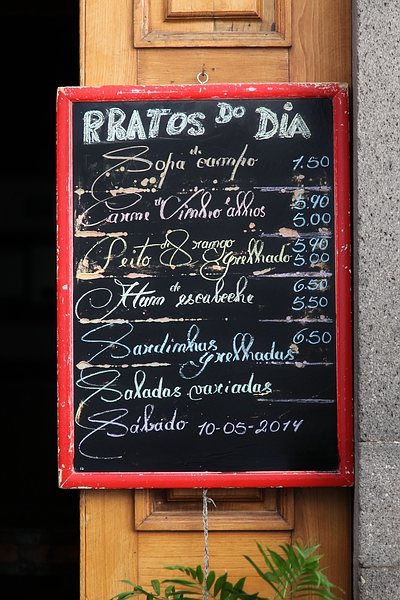 PRATOS DO DIA
Sopa de campo 1.50
Carne de Vinho e alhos 5.90
5.00
Peito de Frango grelhado 5.90
5.00
Atum de escabeche 6.50
5.50
Sardinhas grelhadas 6.50
Saladas variadas
Sábado 10-05-2014